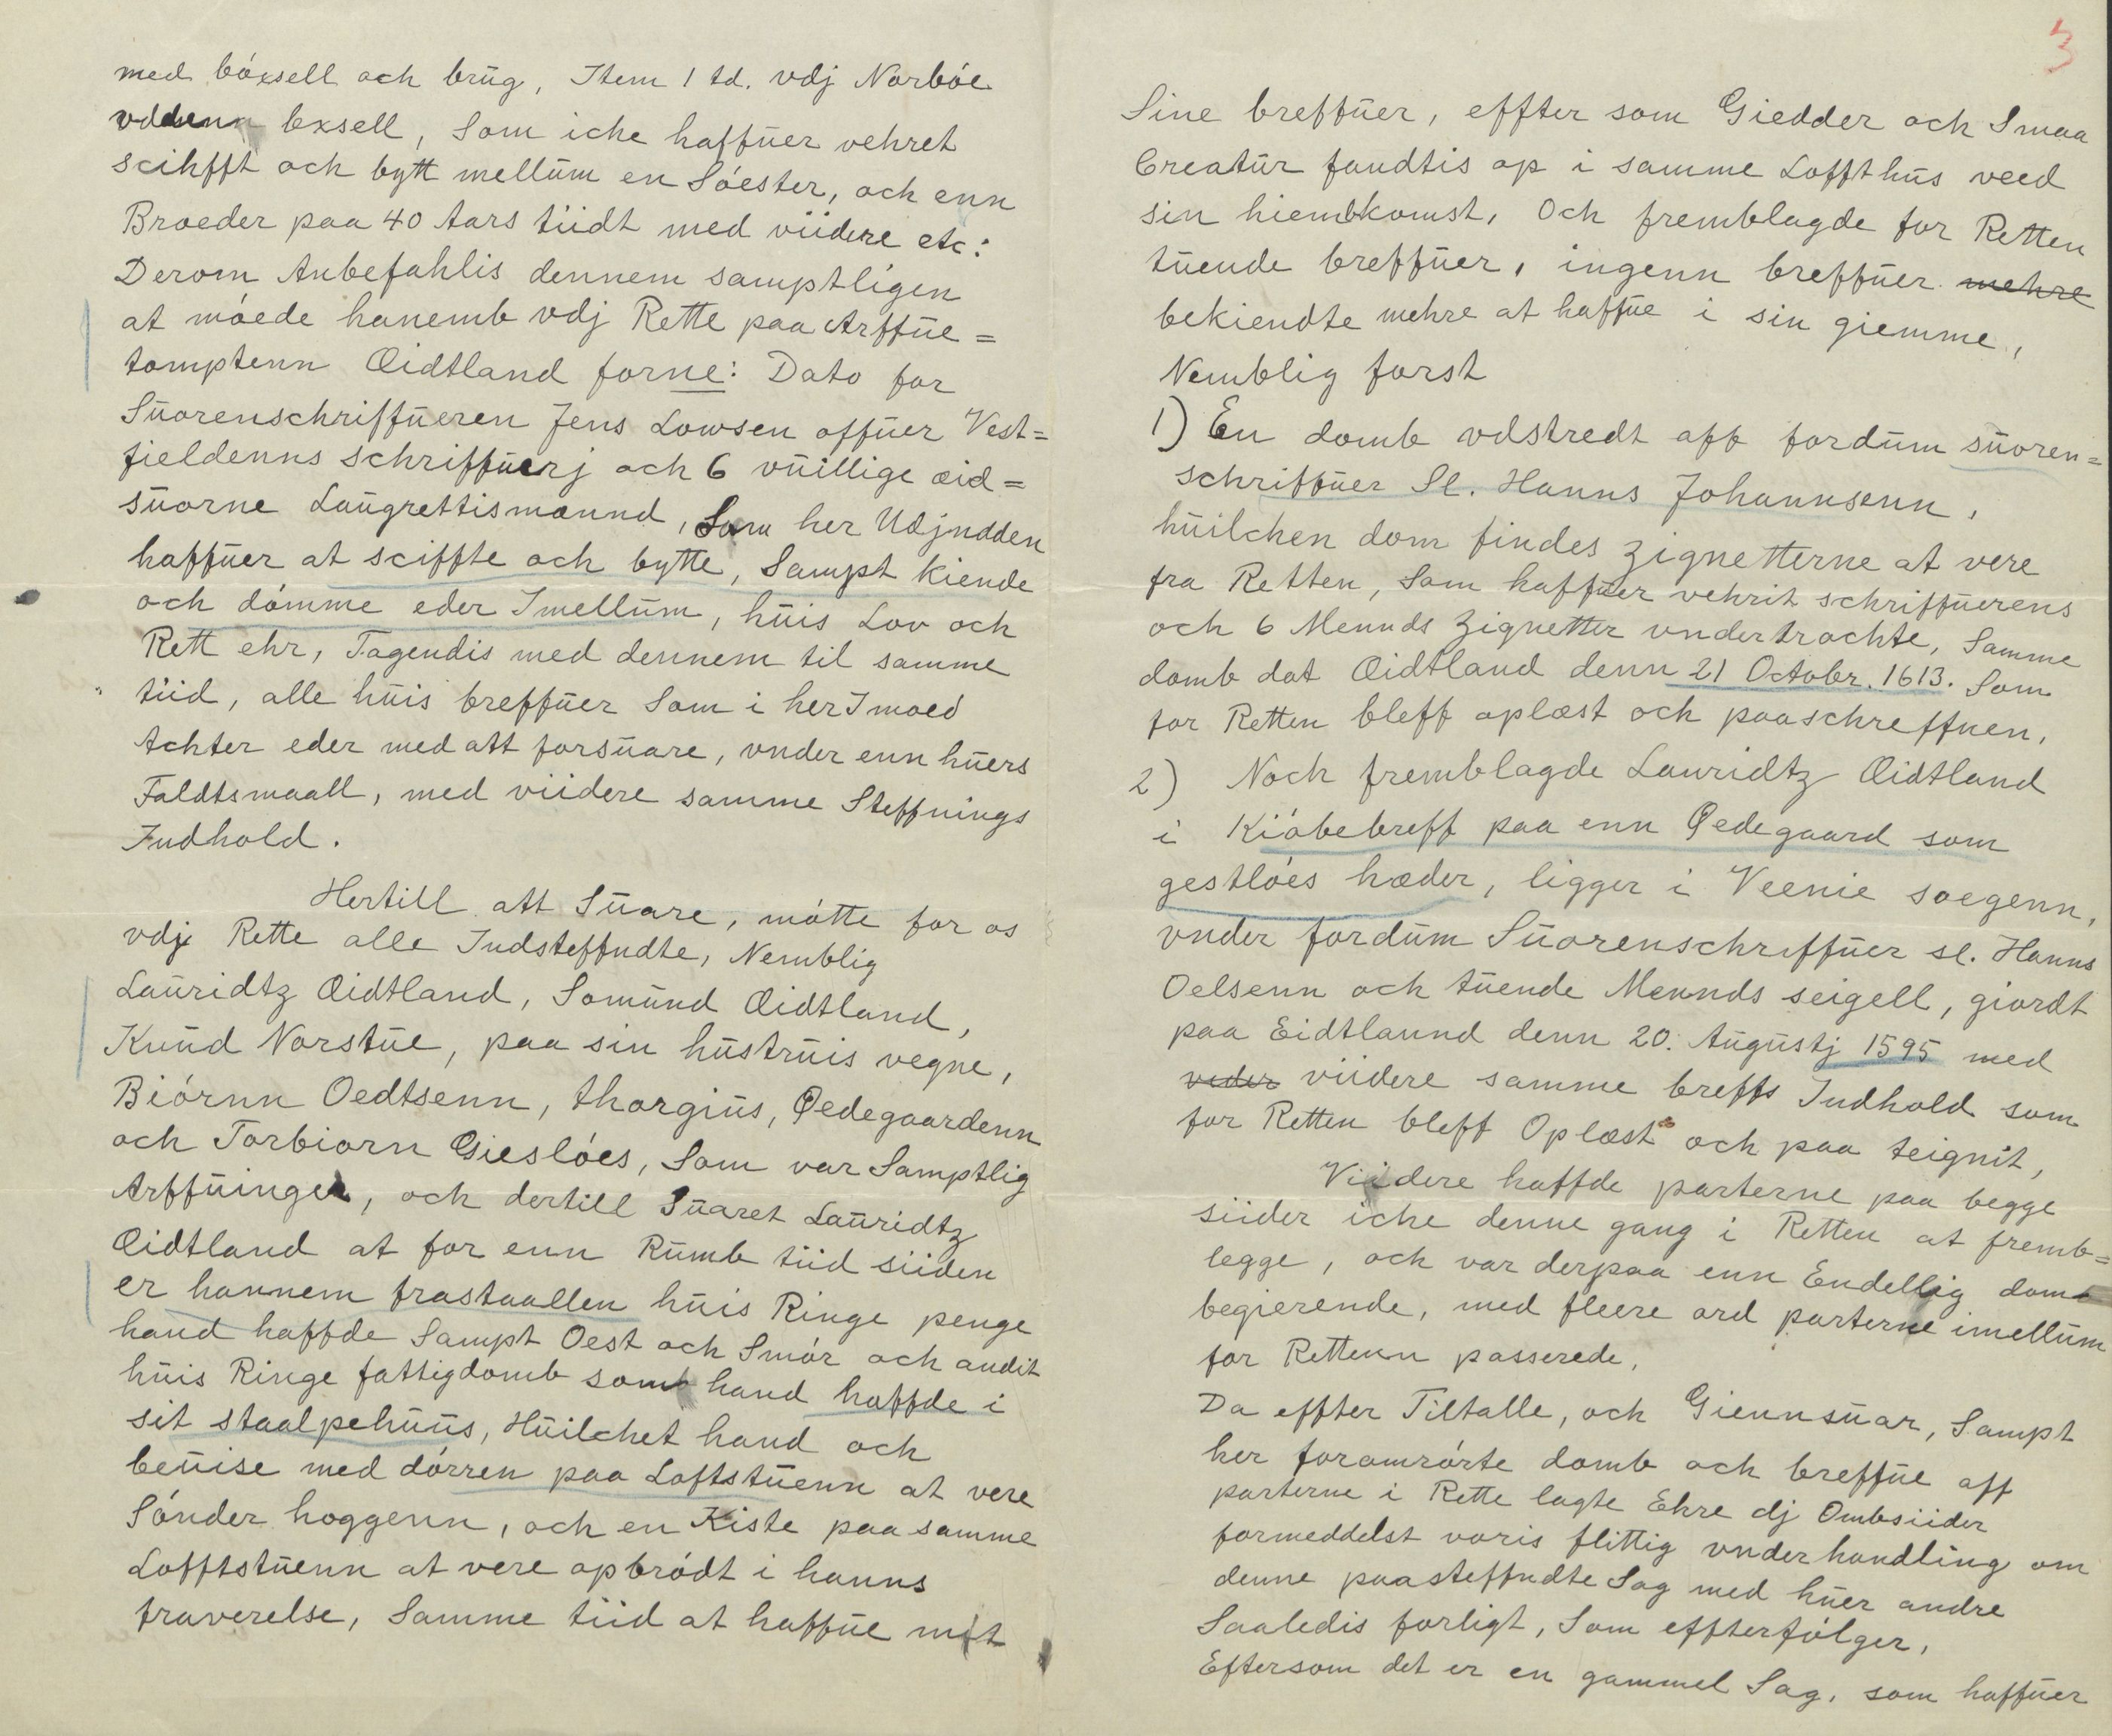 med bóxsell och brūg, Item 1 td. vdj Norbóe
vddenn bxsell, Som iche haffūer vehret
scihfft och bytt mellūm en Sóester, och enn
Broeder paa 40 Aars tiidt med viidere etc:
Derom Anbefahlis dennem samptligen
at móede hanemb vdj Rette paa Arffūe=
tomptenn Qidtland forne: Dato for
Sūorenschriffūeren Jens Lowsen offūer Vest=
fieldenns schriffūerj och 6 vūillige æid=
sūorne Laūgrettismænnd, Som her Udjndden
haffūer at sciffte och bytte, Sampt kiende
och dómme eder Imellūm, hūis Lov och
Rett ehr, Tagendis med dennem til samme
tiid, alle hūis breffūer Som i her Imoed
Achter eder med att forsūare, vnder enn hūers
Faldtsmaall, med viidere samme Steffnings
Indhold.
Hertill att Sūare, mótte for os
vdj Rette alle Indsteffndte, Nemblig
Laūridtz Qidtland, Somūnd Qidtland,
Knūd Norstūe, paa sin hūstrūis vegne,
Biórnn Oedtsenn, Thorgiūs, Qedegaardenn
och Torbiorn Gieslóes, Som var Samptlig
Arffūinger, och dertill Sūaret Laūridtz
Qidtland at for enn Rūmb tiid siiden
er hannem frastaallen hūis Ringe penge
hand haffde Sampt Oest och Smór och andit
hūis Ringe fattigdomb som hand haffde i
sit staalpehūūs, Hūilchet hand och
beūise med dórren paa Loftstūenn at vere
Sónder hoggenn, och en Kiste paa samme
Lofftstūenn at vere opbródt i hanns
fraverelse, Samme tiid at haffūe mist
3
Sine breffūer, effter som Giedder och Smaa
Creatūr fandtis op i samme Loffthūs veed
sin hiembkomst, Och fremblagde for Retten
tūende breffūer, ingenn breffūer mehre
bekiendte mehre at haffūe i sin giemme,
Nemblig forst
1) En domb vdstredt aff fordūm sūoren=
schriffūer Sl. Hanns Johannsenn,
hūilchen dom findes zignetterne at vere
fra Retten, Som haffūer vehrit schriffūerens
och 6 Mennds zignetter vndertrochte, Samme
domb dat Qidtland denn 21 Octobr. 1613. Som
for Retten bleff oplæst och paaschreffuen.
2) Noch fremblagde Lauridtz Qidtland
i Kióbebreff paa enn Qedegaard som
gestlóes hæder, ligger i Veenie soegenn,
vnder fordūm Sūorenschriffūer sl. Hanns
Oelsenn och tūende Mennds seigell, giordt
paa Eidtlannd denn 20. Aūgūstj 1595 med
veder viidere samme breffs Indhold som
for Retten bleff Oplæst och paa teignit,
Viidere haffde parterne paa begge
siider iche denne gang i Retten at fremb=
legge, och var derpaa enn Endellig domb
begierende, med fleere ord parterne imellūm
for Rettenn passerede,
Da effter Tiltalle, och Giennsūar, Sampt
her foramrórte domb och breffūe aff
parterne i Rette lagte Ehre dj Ombsiider
formeddelst voris flittig vnderhandling om
denne paasteffndte Sag med hūer andre
Saaledis forligt, Som effterfólger,
Eftersom det er en gammel Sag, som haffūer